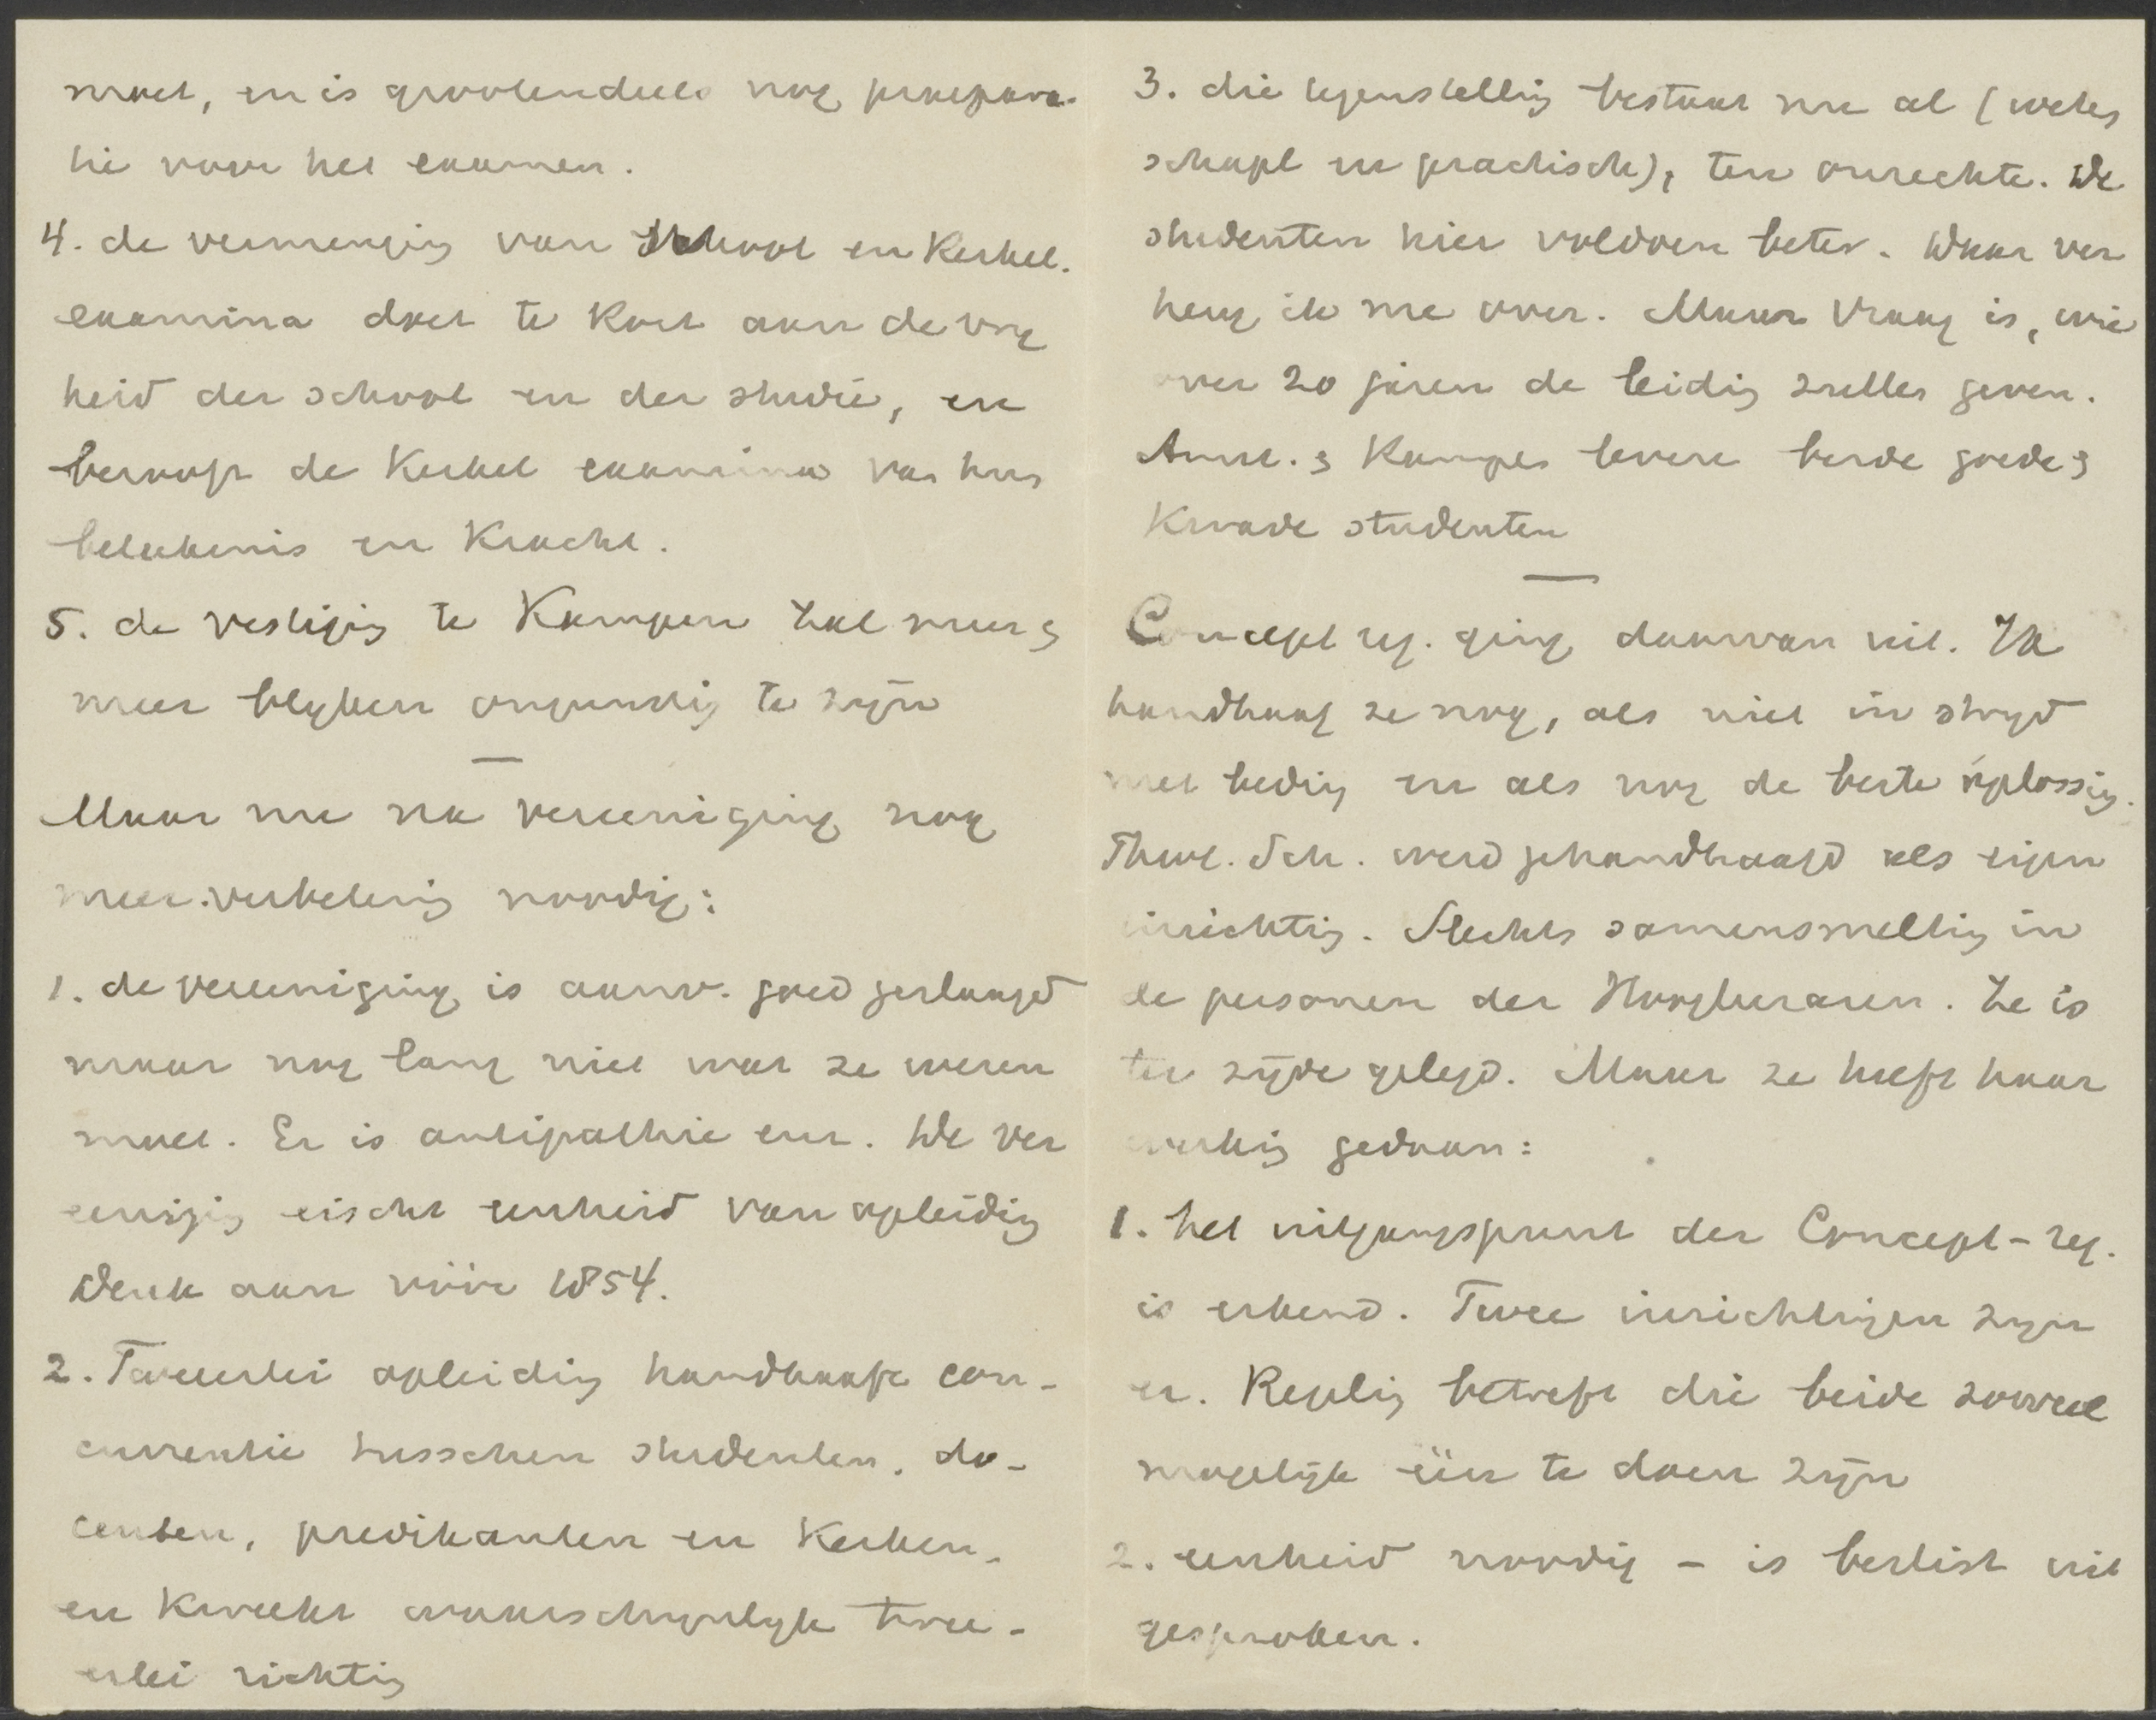 moet, en is grootendeels nog praepara-
tie voor het examen.
4. de vermenging van School en Kerkel.
examina doet te kort aan de vrij
heid der school en der studie, en
berooft de Kerkel examina van hun
beteekenis en Kracht.
5. de vestiging te Kampen zal meer &
meer blijken ongunstig te zijn
—
Maar nu na vereeniging nog
meer verbetering noodig:
1. de vereeniging is aanv. goed geslaagd
maar nog lang niet wat ze wezen
moet. Er is antipathie enz. De ver
eeniging eischt eenheid van opleiding
Denk aan vóór 1854.
2. Tweeerlei opleiding handhaaft con-
currentie tusschen studenten, do-
centen, predikanten en Kerken.
en Kweekt waarschijnlijk twee-
erlei richting
3. die tegenstelling bestaat nu al (weten
schapl en practisch), ten onrechte. De
studenten hier voldoen beter. Daar ver
heug ik me over. Maar vraag is, wie
over 20 jaren de leiding zullen geven.
Amst. & Kampen leveren beide goede &
Kwade studenten
—
Concept reg. ging daarvan uit. Ik
handhaaf ze nog, als niet in strijd
met beding en als nog de beste oplossing.
Theol. Sch. werd gehandhaafd als eigen
inrichting. Slechts samensmelting in
de personen der Hoogleeraren. Ze is
ter zijde gelegd. Maar ze heeft haar
werking gedaan:
1. het uitgangspunt der Concept-reg.
is erkend. Twee inrichtingen zijn
er. Regeling betreft die beide zooveel
mogelijk één te doen zijn
2. eenheid noodig – is beslist uit
gesproken.